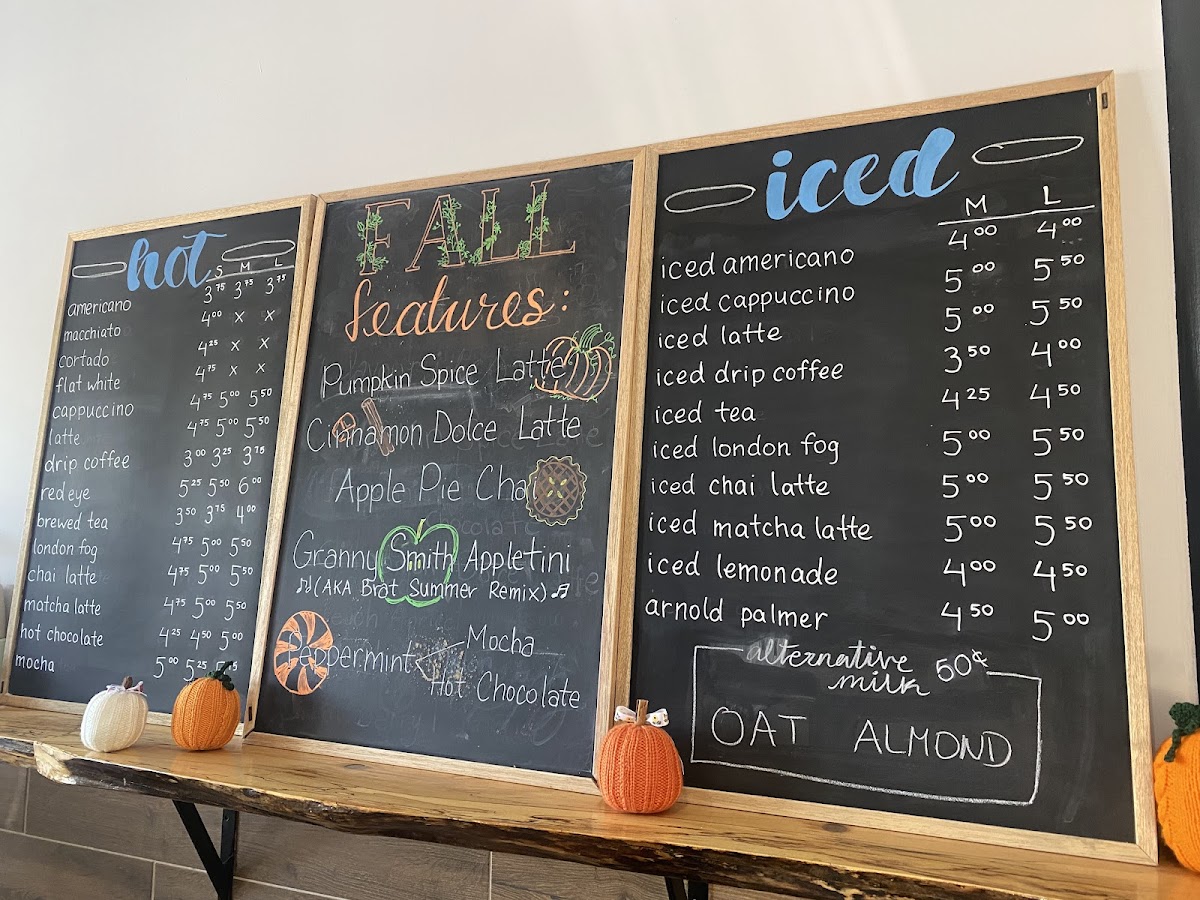 hot
S M L
americano 3⁷⁵ 3⁷⁵ 3⁷⁵
macchiato 4⁰⁰ x x
cortado 4²⁵ x x
flat white 4⁷⁵ x x
cappuccino 4⁷⁵ 5⁰⁰ 5⁵⁰
latte 4⁷⁵ 5⁰⁰ 5⁵⁰
drip coffee 3⁰⁰ 3²⁵ 3⁷⁵
redeye 5²⁵ 5⁵⁰ 6⁰⁰
brewed tea 3⁵⁰ 3⁷⁵ 4⁰⁰
london fog 4⁷⁵ 5⁰⁰ 5⁵⁰
chai latte 4⁷⁵ 5⁰⁰ 5⁵⁰
matcha latte 4⁷⁵ 5⁰⁰ 5⁵⁰
hot chocolate 4²⁵ 4⁵⁰ 5⁰⁰
mocha 5⁰⁰ 5²⁵
FALL
features:
Pumpkin Spice Latte
Cinnamon Dolce Latte
Apple Pie Chai
Granny Smith Appletini
♫♪(AKA Brat Summer Remix)♫
Peppermint
Mocha
Hot Chocolate
iced
M L
iced americano 4⁰⁰ 4⁰⁰
iced cappuccino 5⁰⁰ 5⁵⁰
iced latte 5⁰⁰ 5⁵⁰
iced drip coffee 3⁵⁰ 4⁰⁰
iced tea 4²⁵ 4⁵⁰
iced london fog 5⁰⁰ 5⁵⁰
iced chai latte 5⁰⁰ 5⁵⁰
iced matcha latte 5⁰⁰ 5⁵⁰
iced lemonade 4⁰⁰ 4⁵⁰
arnold palmer 4⁵⁰ 5⁰⁰
alternative
milk 50¢
OAT ALMOND